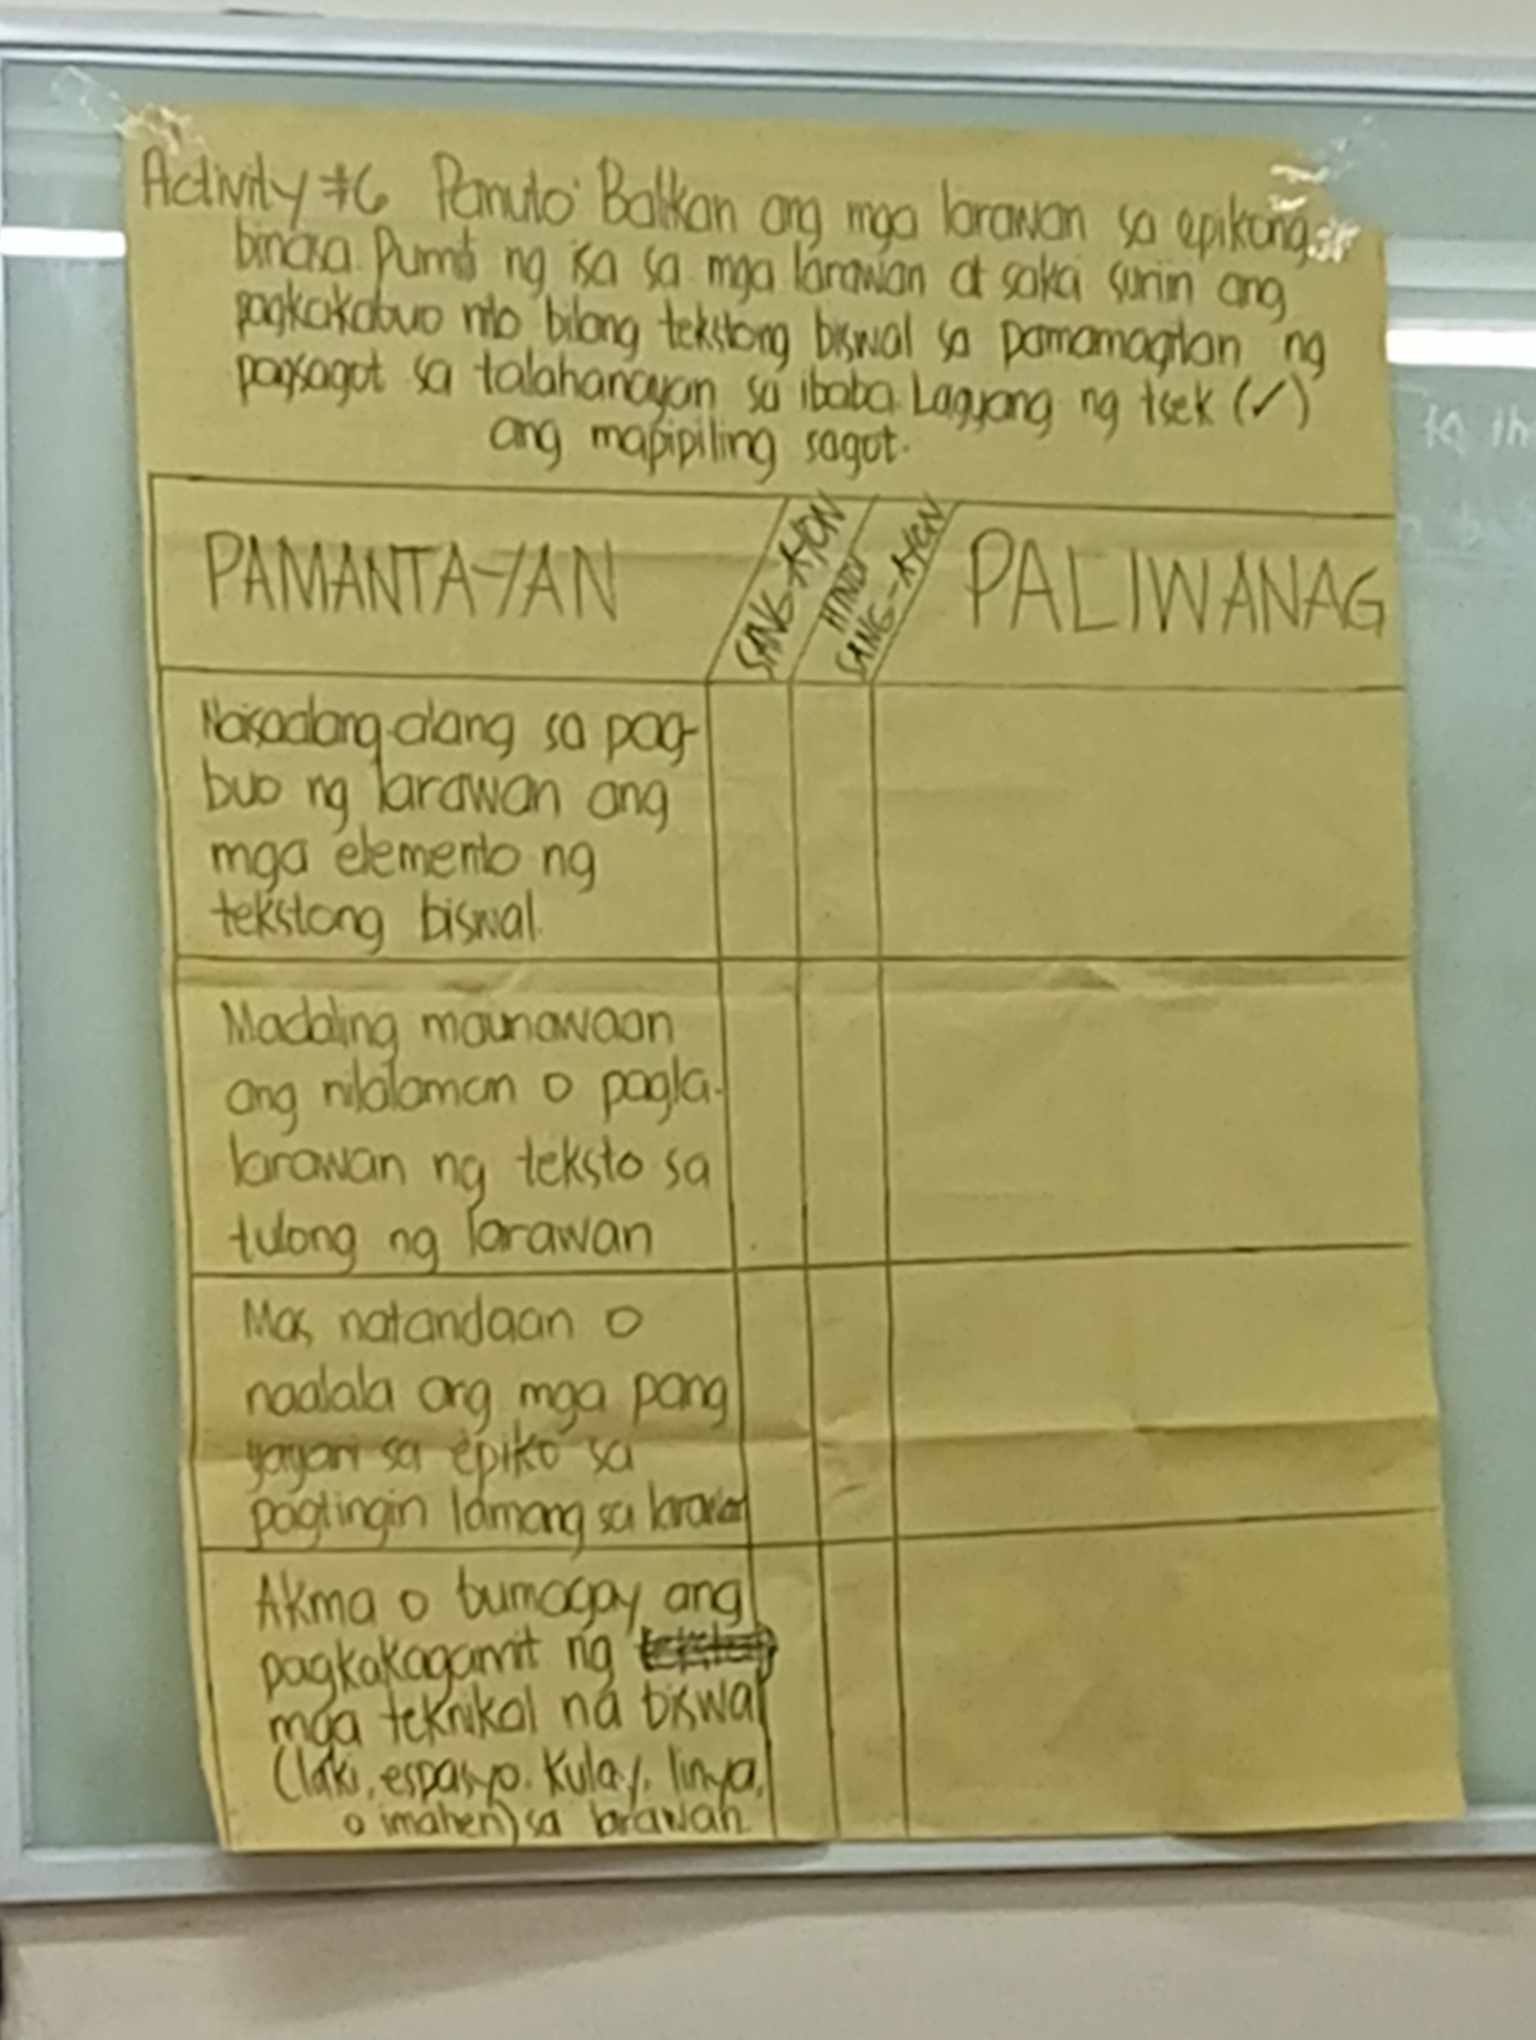 Activity #6 Panuto: Balikan ang mga larawan sa epikong
binasa. Pumili ng isa sa mga larawan at saka suriin ang
pagkakabuo nito bilang tekstong biswal sa pamamagitan ng
pagsagot sa talahanayan sa ibaba. Lagyang ng tsek (✓)
ang mapipiling sagot.
PAMANTAYAN
SANG-AYON
HINDI
SANG-AYON
PALIWANAG
Naisaalang-alang sa pag-
buo ng larawan ang
mga elemento ng
tekstong biswal.
Madaling maunawaan
ang nilalaman o pagla-
larawan ng teksto sa
tulong ng larawan
Mas natandaan o
naalala ang mga pang
yayari sa epiko sa
pagtingin lamang sa larawan
Akma o bumagay ang
pagkakagamit ng
mga teknikal na biswal
(laki, espasyo, kulay, linya,
o imahen) sa larawan